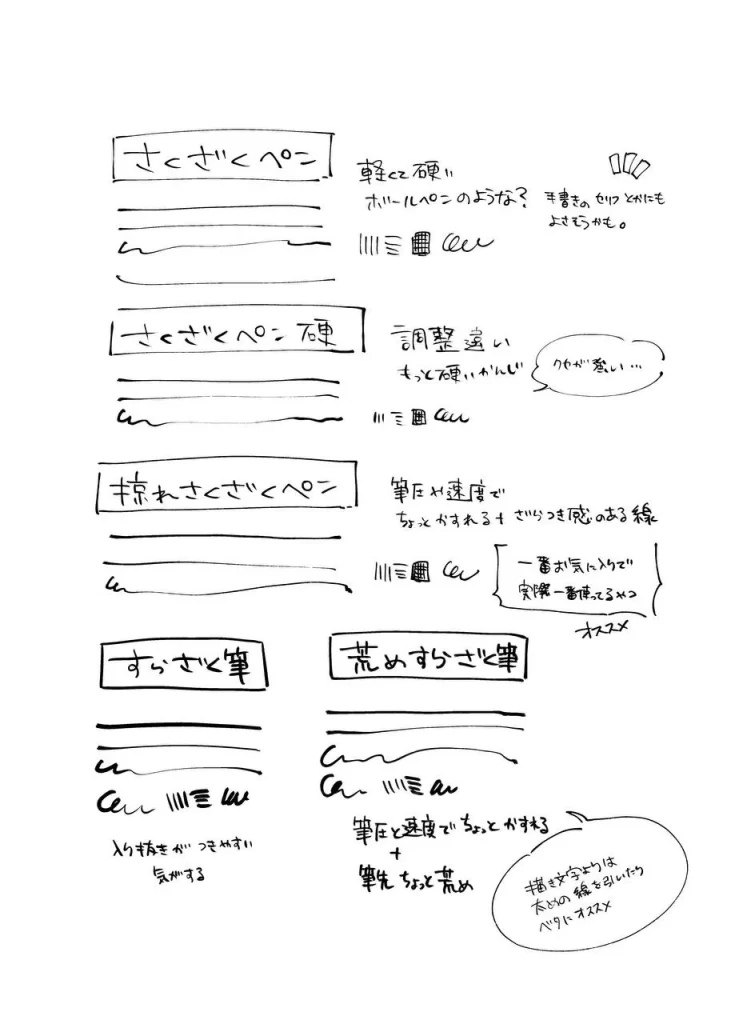 さくざくペン
軽くて硬い
ボールペンのような?
手書きのセリフとかにも
よさそうかも。
さくざくペン 硬
調整違い
もっと硬いかんじ
クセが強い…
掠れさくざくペン
筆圧や速度で
ちょっとかすれる+ざらつき感のある線
一番お気に入りで
実際一番使ってるやつ
オススメ
すらざく筆
入り抜きがつきやすい
気がする
荒めすらざく筆
筆圧と速度でちょっとかすれる
+
筆先ちょっと荒め
描き文字よりは
太めの線を引いたり
ベタにオススメ